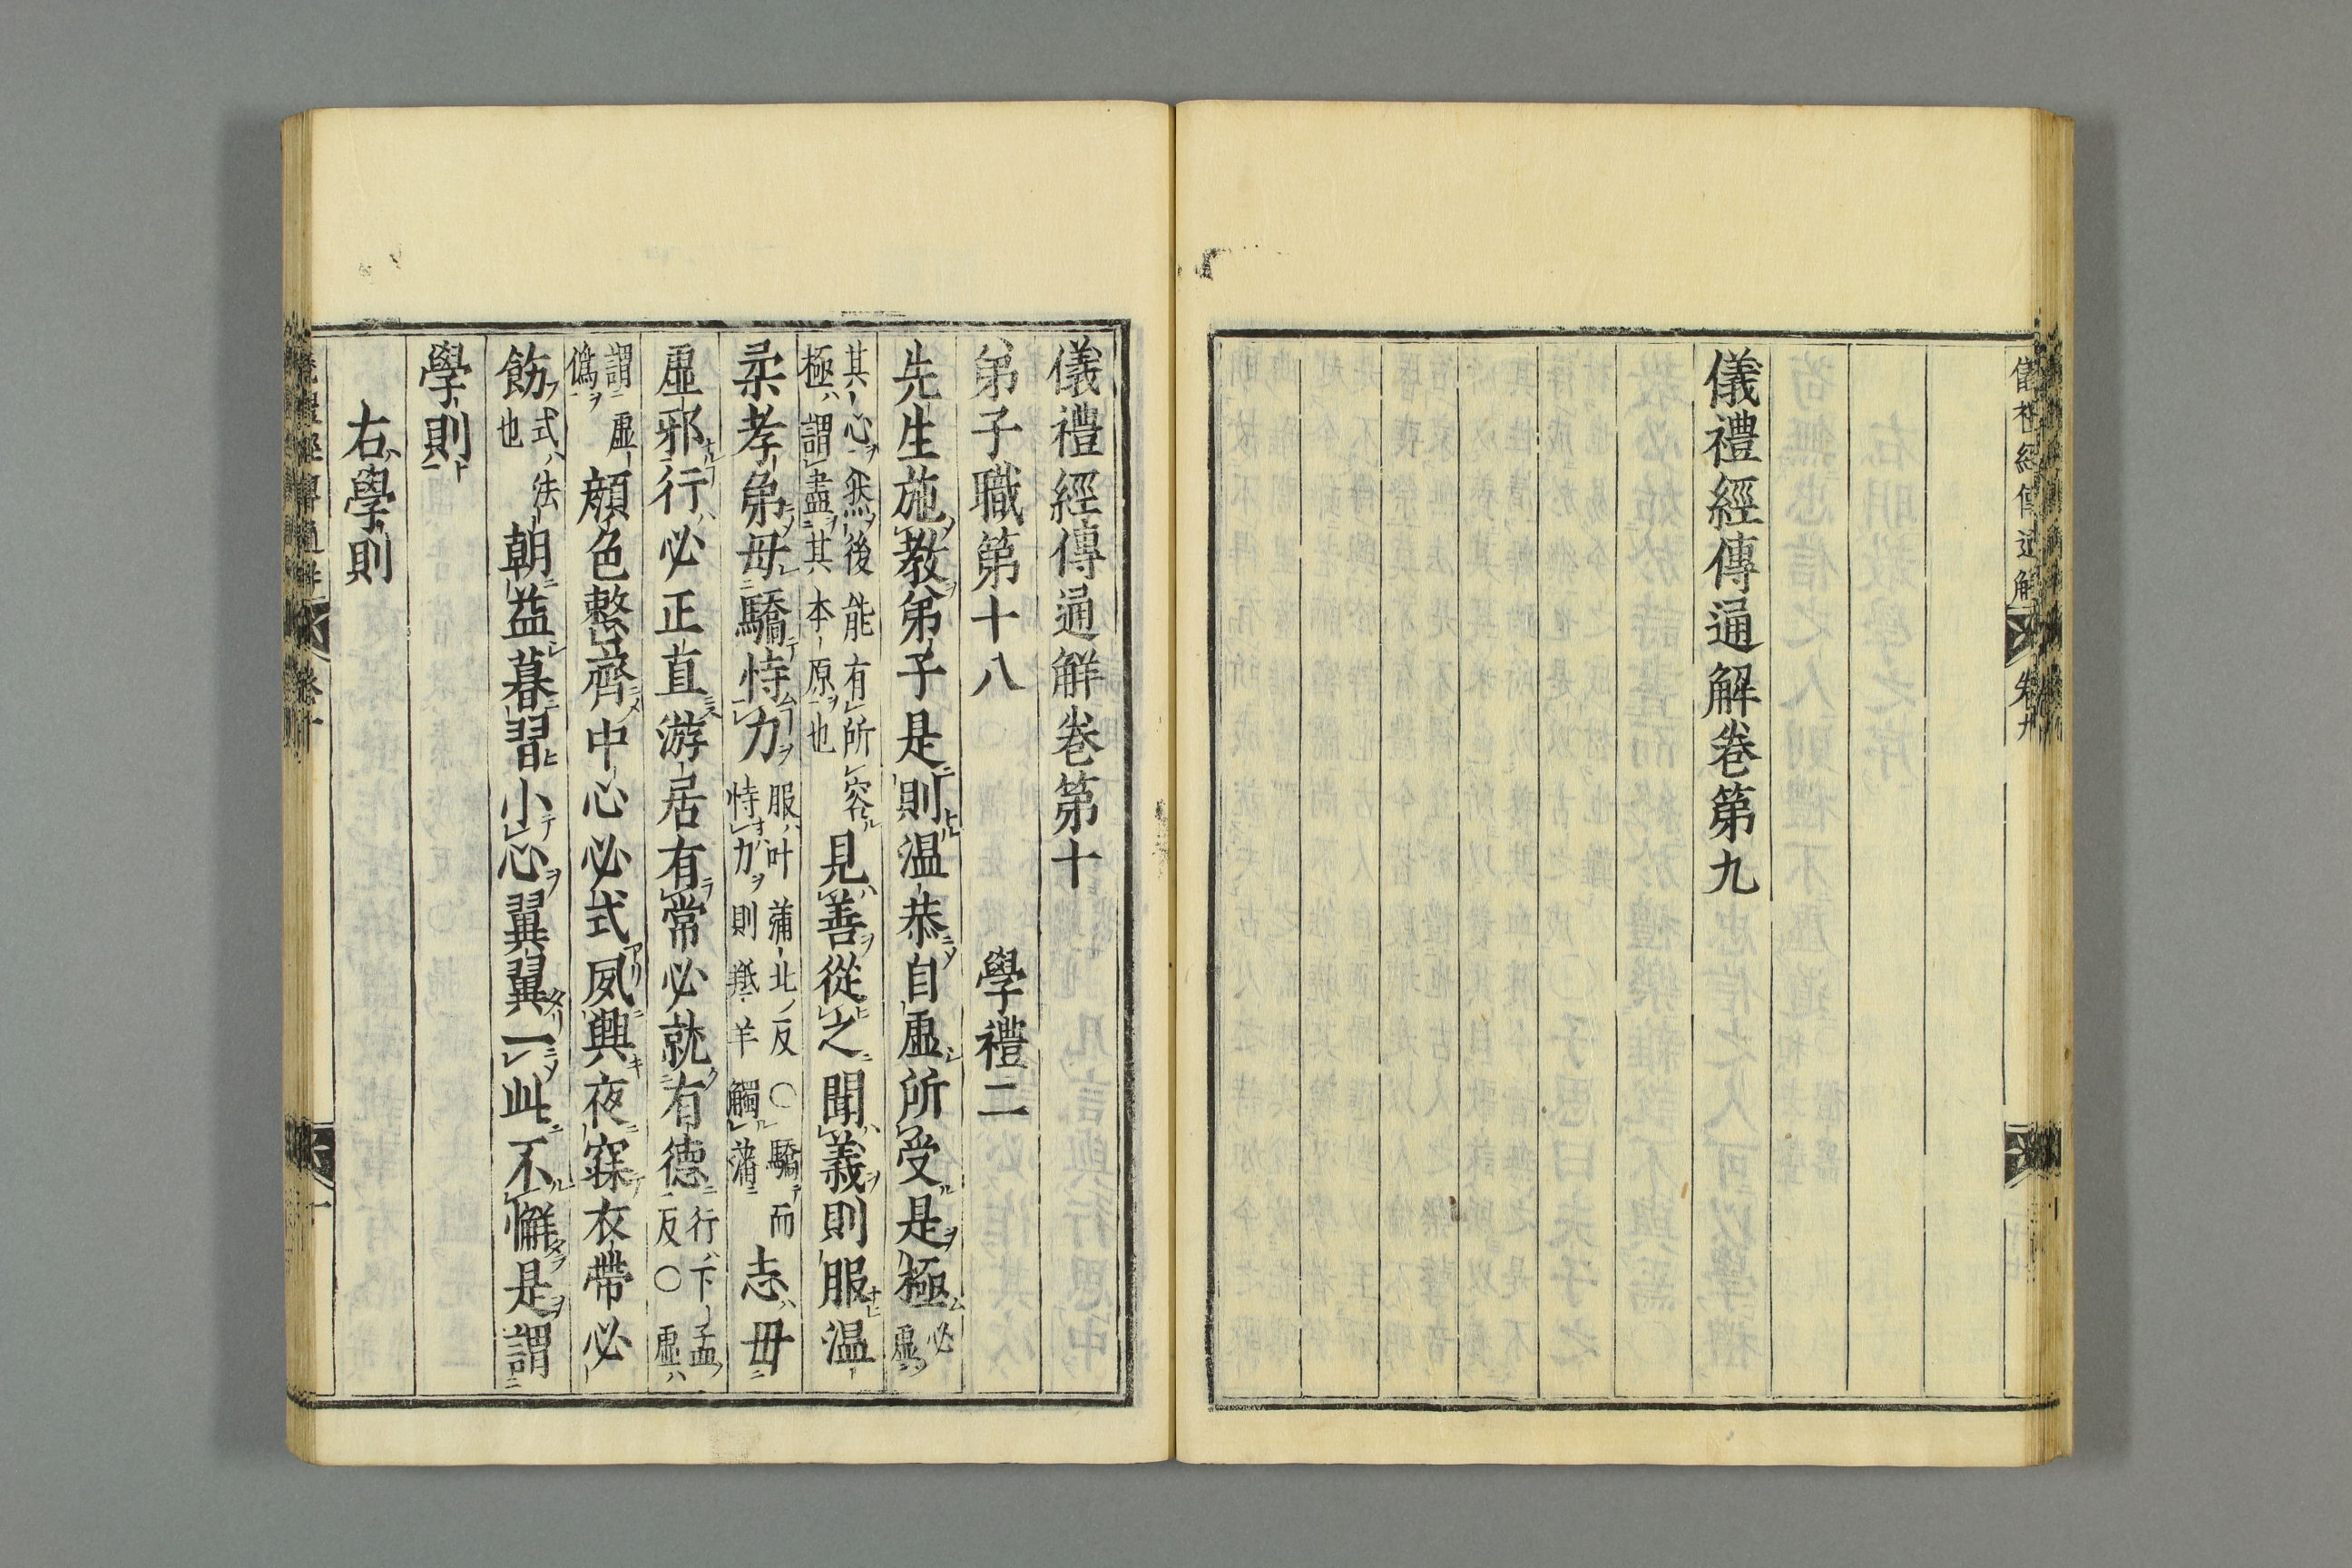 儀禮經傳通解 卷九
儀禮經傳通解卷第九
儀禮經傳通解卷第十
弟子職第十八 學禮二
先生施教弟子是則温恭自虛所受是極必虛
其心然後能有所容
極謂盡其本原也
見善從之聞義則服温
柔孝弟毋驕恃力
服叶蒲北反○驕而
恃力則羝羊觸藩
志毋
虛邪行必正直游居有常必就有德
行下孟
反○虛
謂虛
僞
顔色整齊中心必式夙興夜寐衣帶必
飭
式法
也
朝益暮習小心翼翼一此不懈是謂
學則
右學則
卷十